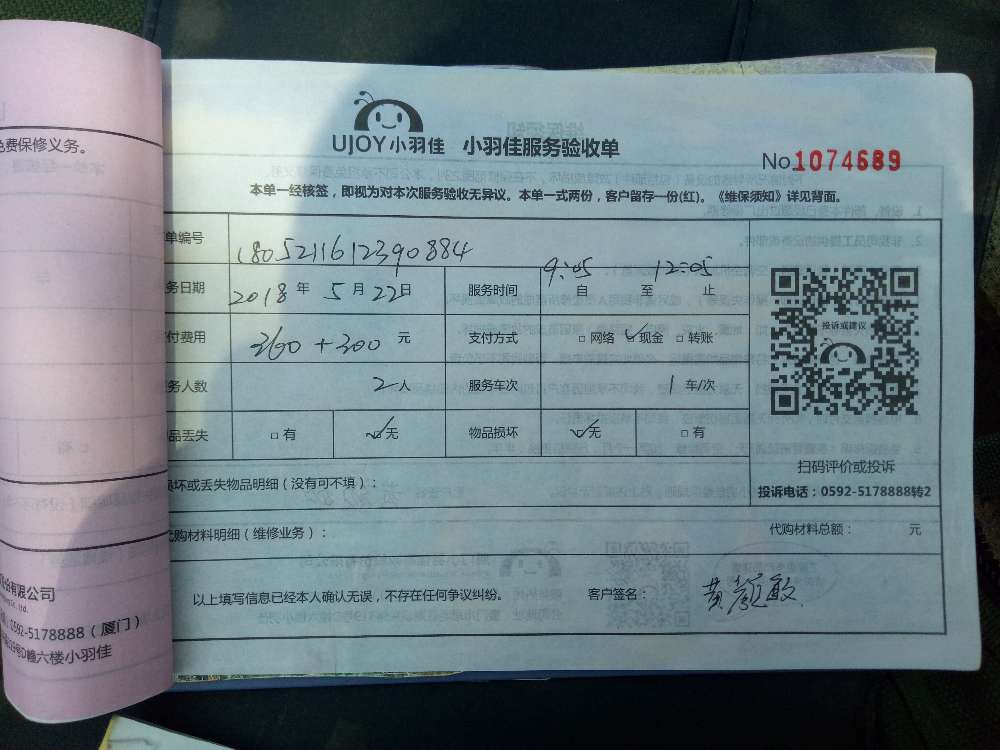 免费保修义务。
UJOY小羽佳 小羽佳服务验收单
No.1074689
本单一经核签，即视为对本次服务验收无异议。本单一式两份，客户留存一份(红)。《维保须知》详见背面。
单编号 1805211612390884
务日期 2018年 5月 22日 服务时间 9:05 自 至 12:05 止
付费用 360+300 元 支付方式 □网络 ☑现金 □转账
务人数 2人 服务车次 1车/次
品丢失 □有 ☑无 物品损坏 ☑无 □有
投诉或建议
扫码评价或投诉
投诉电话：0592-5178888转2
损坏或丢失物品明细（没有可不填）：
代购材料明细（维修业务）： 代购材料总额： 元
以上填写信息已经本人确认无误，不存在任何争议纠纷。 客户签名：
份有限公司
0592-5178888（厦门）
六楼小羽佳